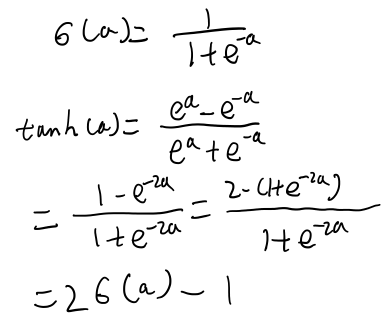 σ(a) = \frac{1}{1+e^{-a}}
tanh(a) = \frac{e^{a}-e^{-a}}{e^{a}+e^{-a}}
= \frac{1-e^{-2a}}{1+e^{-2a}} = \frac{2-(1+e^{-2a})}{1+e^{-2a}}
= 2σ(a) - 1